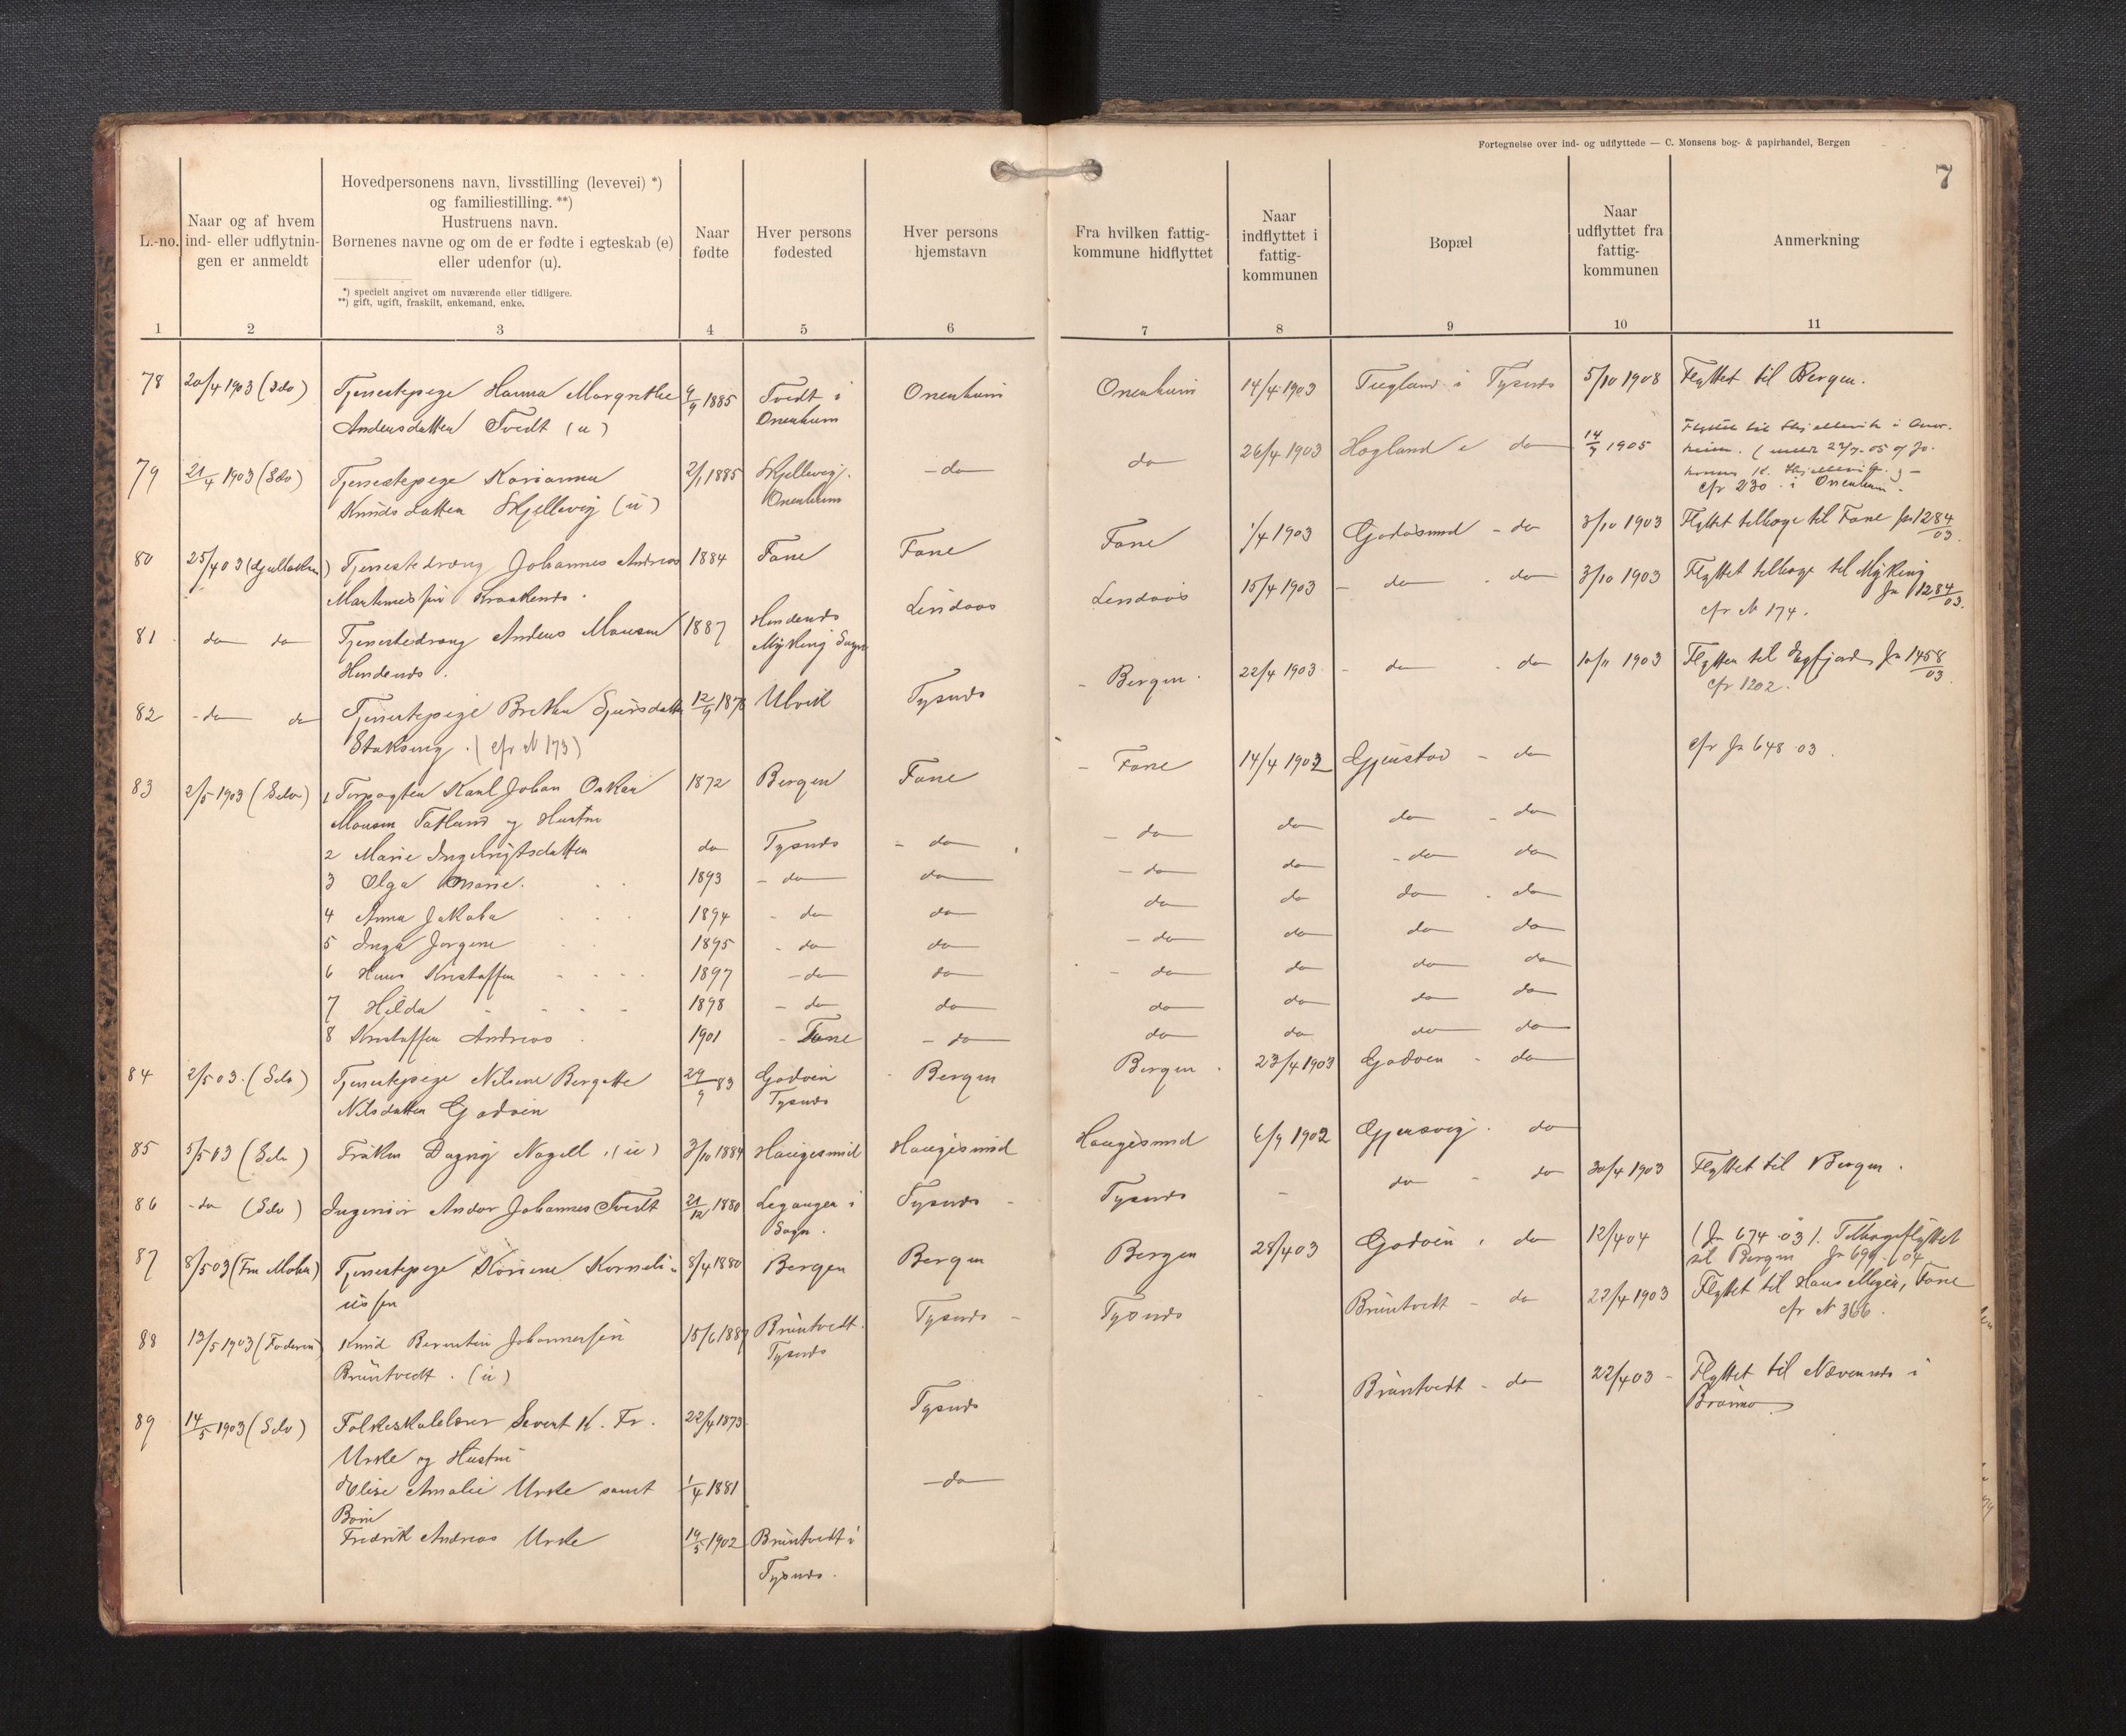 Fortegnelse over ind- og udflyttede — C. Monsens bog- & papirhandel, Bergen
7
L.-no.
Naar og af hvem
ind- eller udflytnin-
gen er anmeldt
Hovedpersonens navn, livsstilling (levevei) *)
og familiestilling. **)
Hustruens navn.
Børnenes navne og om de er fødte i egteskab (e)
eller udenfor (u).
*) specielt angivet om nuværende eller tidligere.
**) gift, ugift, fraskilt, enkemand, enke.
Naar
fødte
Hver persons
fødested
Hver persons
hjemstavn
Fra hvilken fattig-
kommune hidflyttet
Naar
indflyttet i
fattig-
kommunen
Bopæl
Naar
udflyttet fra
fattig-
kommunen
Anmerkning
1 2 3 4 5 6 7 8 9 10 11
78 20/4 1903 Tjenestepige Hanna Margrethe 1885 Tvedt i Onenheim Onenheim 14/4 1903 i Tysnes 5/10 1908 Flyttet til Bergen.
Andersdatter Tvedt (u) Onenheim
79 21/4 1903 (Selv) Tjenestepige 2/1 1885 Skjellevig. - do do 26/4 1903 Hogland i do 14/7 1905 Flyttet til Skjellevik i
Knudsdatter Skjellevig (u) Onenheim
cfr 230 i Onenheim.
80 25/4 03 Tjenestedreng Johannes Andreas 1884 Fane Fane Fane 1/4 1903 Godøsund - do 3/10 1903 Flyttet tilbage til Fane Jn 1284/03.
Martinussen
81 do do Tjenestedreng Anders Monsen 1887 Hindenes Lindaas Lindaas 15/4 1903 - do - do 3/10 1903 Flyttet tilbage til Myking
Hindenes. Myking Sogn Jn 1284/03.
cfr N 174.
82 - do do Tjenestepige Sjursdatter Ulvik Tysnes - Bergen. 22/4 1903 - do - do 10/11 1903 Flyttet til Jn 1458/03.
(cfr N 173) cfr 1202.
83 2/5 1903 (Selv) 1 Karl Johan Oskar 1872 Bergen Fane - Fane 14/4 1902 - do cfr Jn 648 03.
Monsen og Hustru
2 Marie Ingebrigtsdatter do Tysnes - do - do do do - do
3 Olga Marie. 1893 - do do - do do - do do
4 Anna Jakoba 1894 - do do do do do - do
5 Inga Jorgine 1895 - do do - do do do do
6 Hans Kristoffer 1897 - do do - do do do do
7 Hilda 1898 - do do do do do do
8 Kristoffer Andreas 1901 - Fane - do do do do do
84 2/5 03. (Selv) Tjenestepige Nilsine Bergette 29/9 83 Godøen Bergen Bergen. 23/4 1903 Godøen - do
Nilsdatter Godøen Tysnes
85 5/5 03 (Selv) Frøken Dagny Nagell, (u) 3/10 1884 Haugesund Haugesund Haugesund 6/9 1902 Gjersvig. do
86 - do (Selv) Ingeniør Andor Johannes Tvedt 21/12 1880 Leganger i Tysnes - Tysnes - do - do 30/4 1903 Flyttet til Bergen.
Sogn.
87 8/5 03 Tjenestepige Korneli- 8/4 1880 Bergen Bergen Bergen 28/4 03 Godøen, do 12/4 04 (Jn 674 03). Tilbageflyttet
ussen til Bergen Jn 699/04
88 13/5 1903 (Faderen) Knud Johannessen 15/6 1887 Bruntvedt. Tysnes - Tysnes Bruntvedt - do 22/4 1903 Flyttet til Hans Fane
Bruntvedt. (u) Tysnes cfr N 366.
89 14/5 1903 (Selv) Folkeskolelærer Severt K. Fr. 22/4 1873 Tysnes Bruntvedt - do 22/4 03 - Flyttet til i
Urske og Hustru
Elise Amalie Urske samt 1/4 1881 - do
Børn
Fredrik Andreas Urske 19/5 1902 Bruntvedt i
Tysnes.